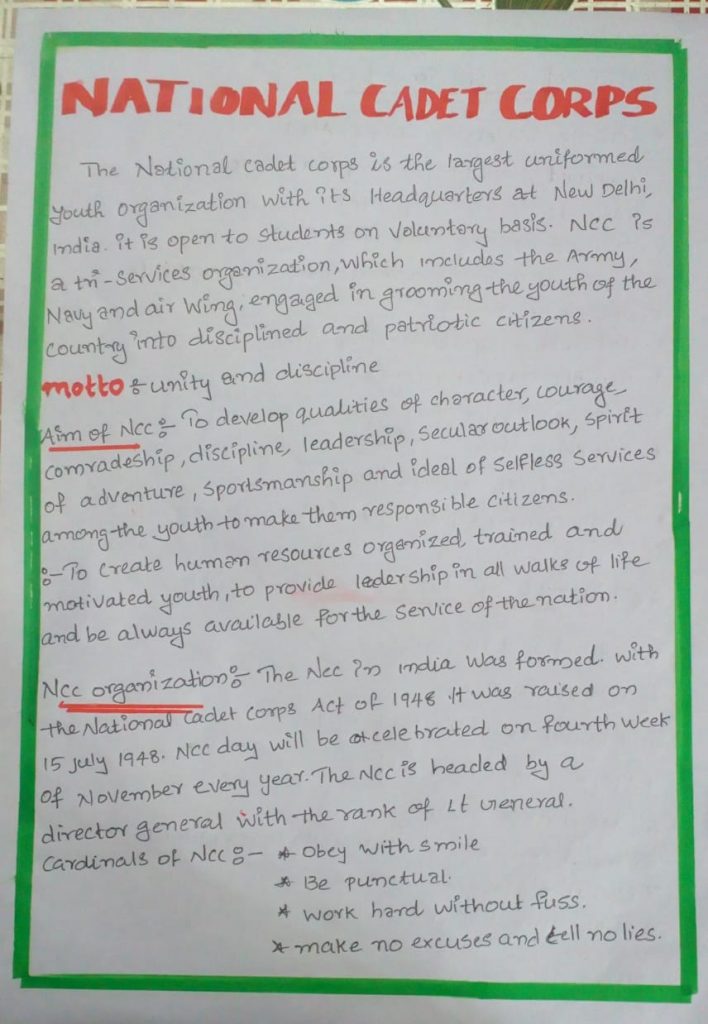 NATIONAL CADET CORPS
The National cadet corps is the largest uniformed
youth organization with its Headquarters at New Delhi,
india. it is open to students on voluntary basis. Ncc is
a tri-services organization, which includes the Army,
Navy and air Wing, engaged in grooming the youth of the
country into disciplined and patriotic citizens.
motto :- unity and discipline
Aim of Ncc :- To develop qualities of character, courage,
comradeship, discipline, leadership, secular outlook, spirit
of adventure, sportsmanship and ideal of selfless services
among the youth to make them responsible citizens.
:- To create human resources organized, trained and
motivated youth, to provide ledership in all walks of life
and be always available for the service of the nation.
Ncc organization :- The Ncc in india was formed. with
the National Cadet corps Act of 1948 .It was raised on
15 July 1948. Ncc day will be celebrated on fourth week
of November every year. The Ncc is headed by a
director general with the rank of Lt General.
Cardinals of Ncc :- * Obey with smile
* Be punctual.
* work hard without fuss.
* make no excuses and tell no lies.